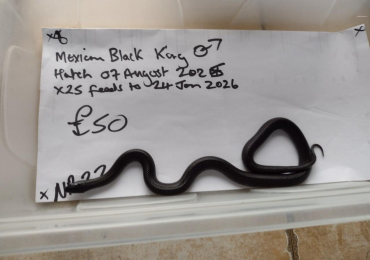 x8
Mexican Black King ♂
Hatch 07 August 2025
x25 feeds to 24 Jan 2026
£50
x
x